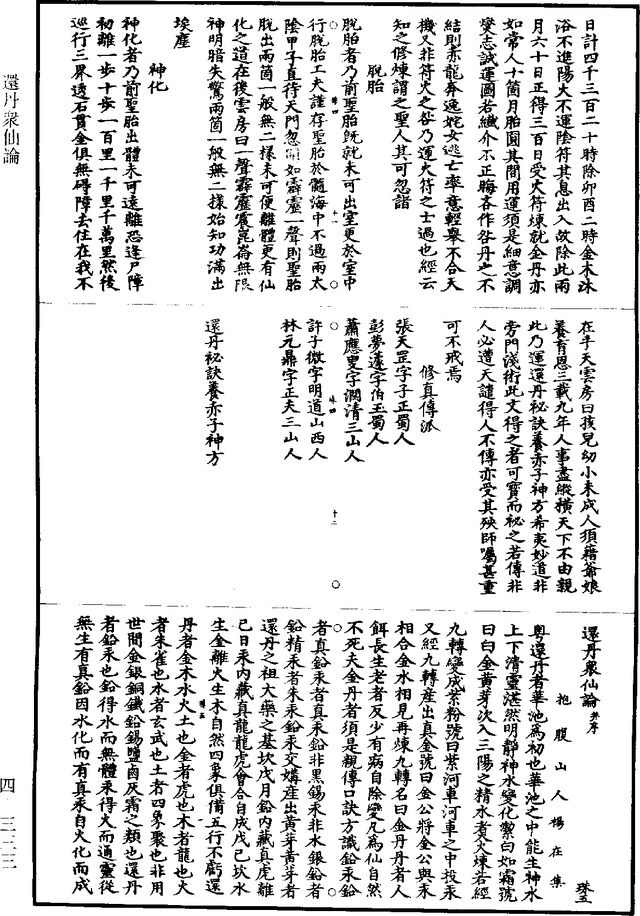 日計四千三百二十時除卯酉二時金木沐
浴不進陽火不運陰符其息出入故除此兩
月六十日正得三百日受火符煉就金丹亦
如常人十箇月胎圓其間用運須是細意調
燮志誠運圖若纖介不正晦吝作咎丹之不
結則赤龍奔逸姹女逃亡率意輕舉不合天
機又非符火之咎乃運火符之士過也經云
知之修煉謂之聖人其可忽諸
脫胎
脫胎者乃前聖胎既就未可出室更於室中
行脫胎工夫謹存聖胎於髓海中不過兩太
陰甲子直待天門忽開如霹靂一聲則聖胎
脫出兩箇一般無二樣未可便離體更有仙
化之道在後雲房曰一聲霹靂震崑崙無限
神明暗失驚兩箇一般無二樣始知功滿出
埃塵
神化
神化者乃前聖胎出體未可遠離恐逢尸障
初離一步十步一百里一千里千萬里然後
巡行三界透石貫金俱無碍障去住在我不
在乎天雲房曰孩兒幼小未成人須藉爺娘
養育恩三載九年人事盡縱橫天下不由親
此乃運還丹祕訣養赤子神方希夷妙道非
旁門淺術此文得之者可寶而祕之若傳非
人必遭天譴得人不傳亦受其殃師囑甚重
可不戒焉
修真傳派
張天罡字子正蜀人
彭夢蘧字伯玉蜀人
蕭應叟字潤清三山人
許子微字明道山西人
林元鼎字正夫三山人
還丹祕訣養赤子神方
還丹眾仙論并序 珠五
抱腹山人楊在集
粵還丹者華池為初也華池之中能生神水
上下清靈湛然明靜神水變化潔白如霜號
曰白金黃芽次入三陽之精水煮火煉若經
九轉變成紫粉號曰紫河車河車之中投汞
又經九轉產出真金號曰金公將金公與汞
相合金水相見再煉九轉名曰金丹丹者人
餌長生老者反少有病自除變凡為仙自然
不死夫金丹者須是親傳口訣方識鉛汞鉛
者真鉛汞者真汞鉛非黑錫汞非水銀鉛者
鉛精汞者朱汞鉛汞交媾產出黃芽黃芽者
還丹之祖大藥之基坎戊月鉛內藏真虎離
己日汞內藏真龍龍虎會合自成戊己坎水
生金離火生木自然四象俱備五行不虧還
丹者金木水火土也金者虎也木者龍也火
者朱雀也水者玄武也土者四象聚也非用
世間金銀銅鐵鉛錫鹽鹵灰霜之類也還丹
者鉛汞也鉛得水而無體汞得火而通靈從
無生有真鉛因水化而有真汞自火化而成
還丹眾仙論
四
三三三